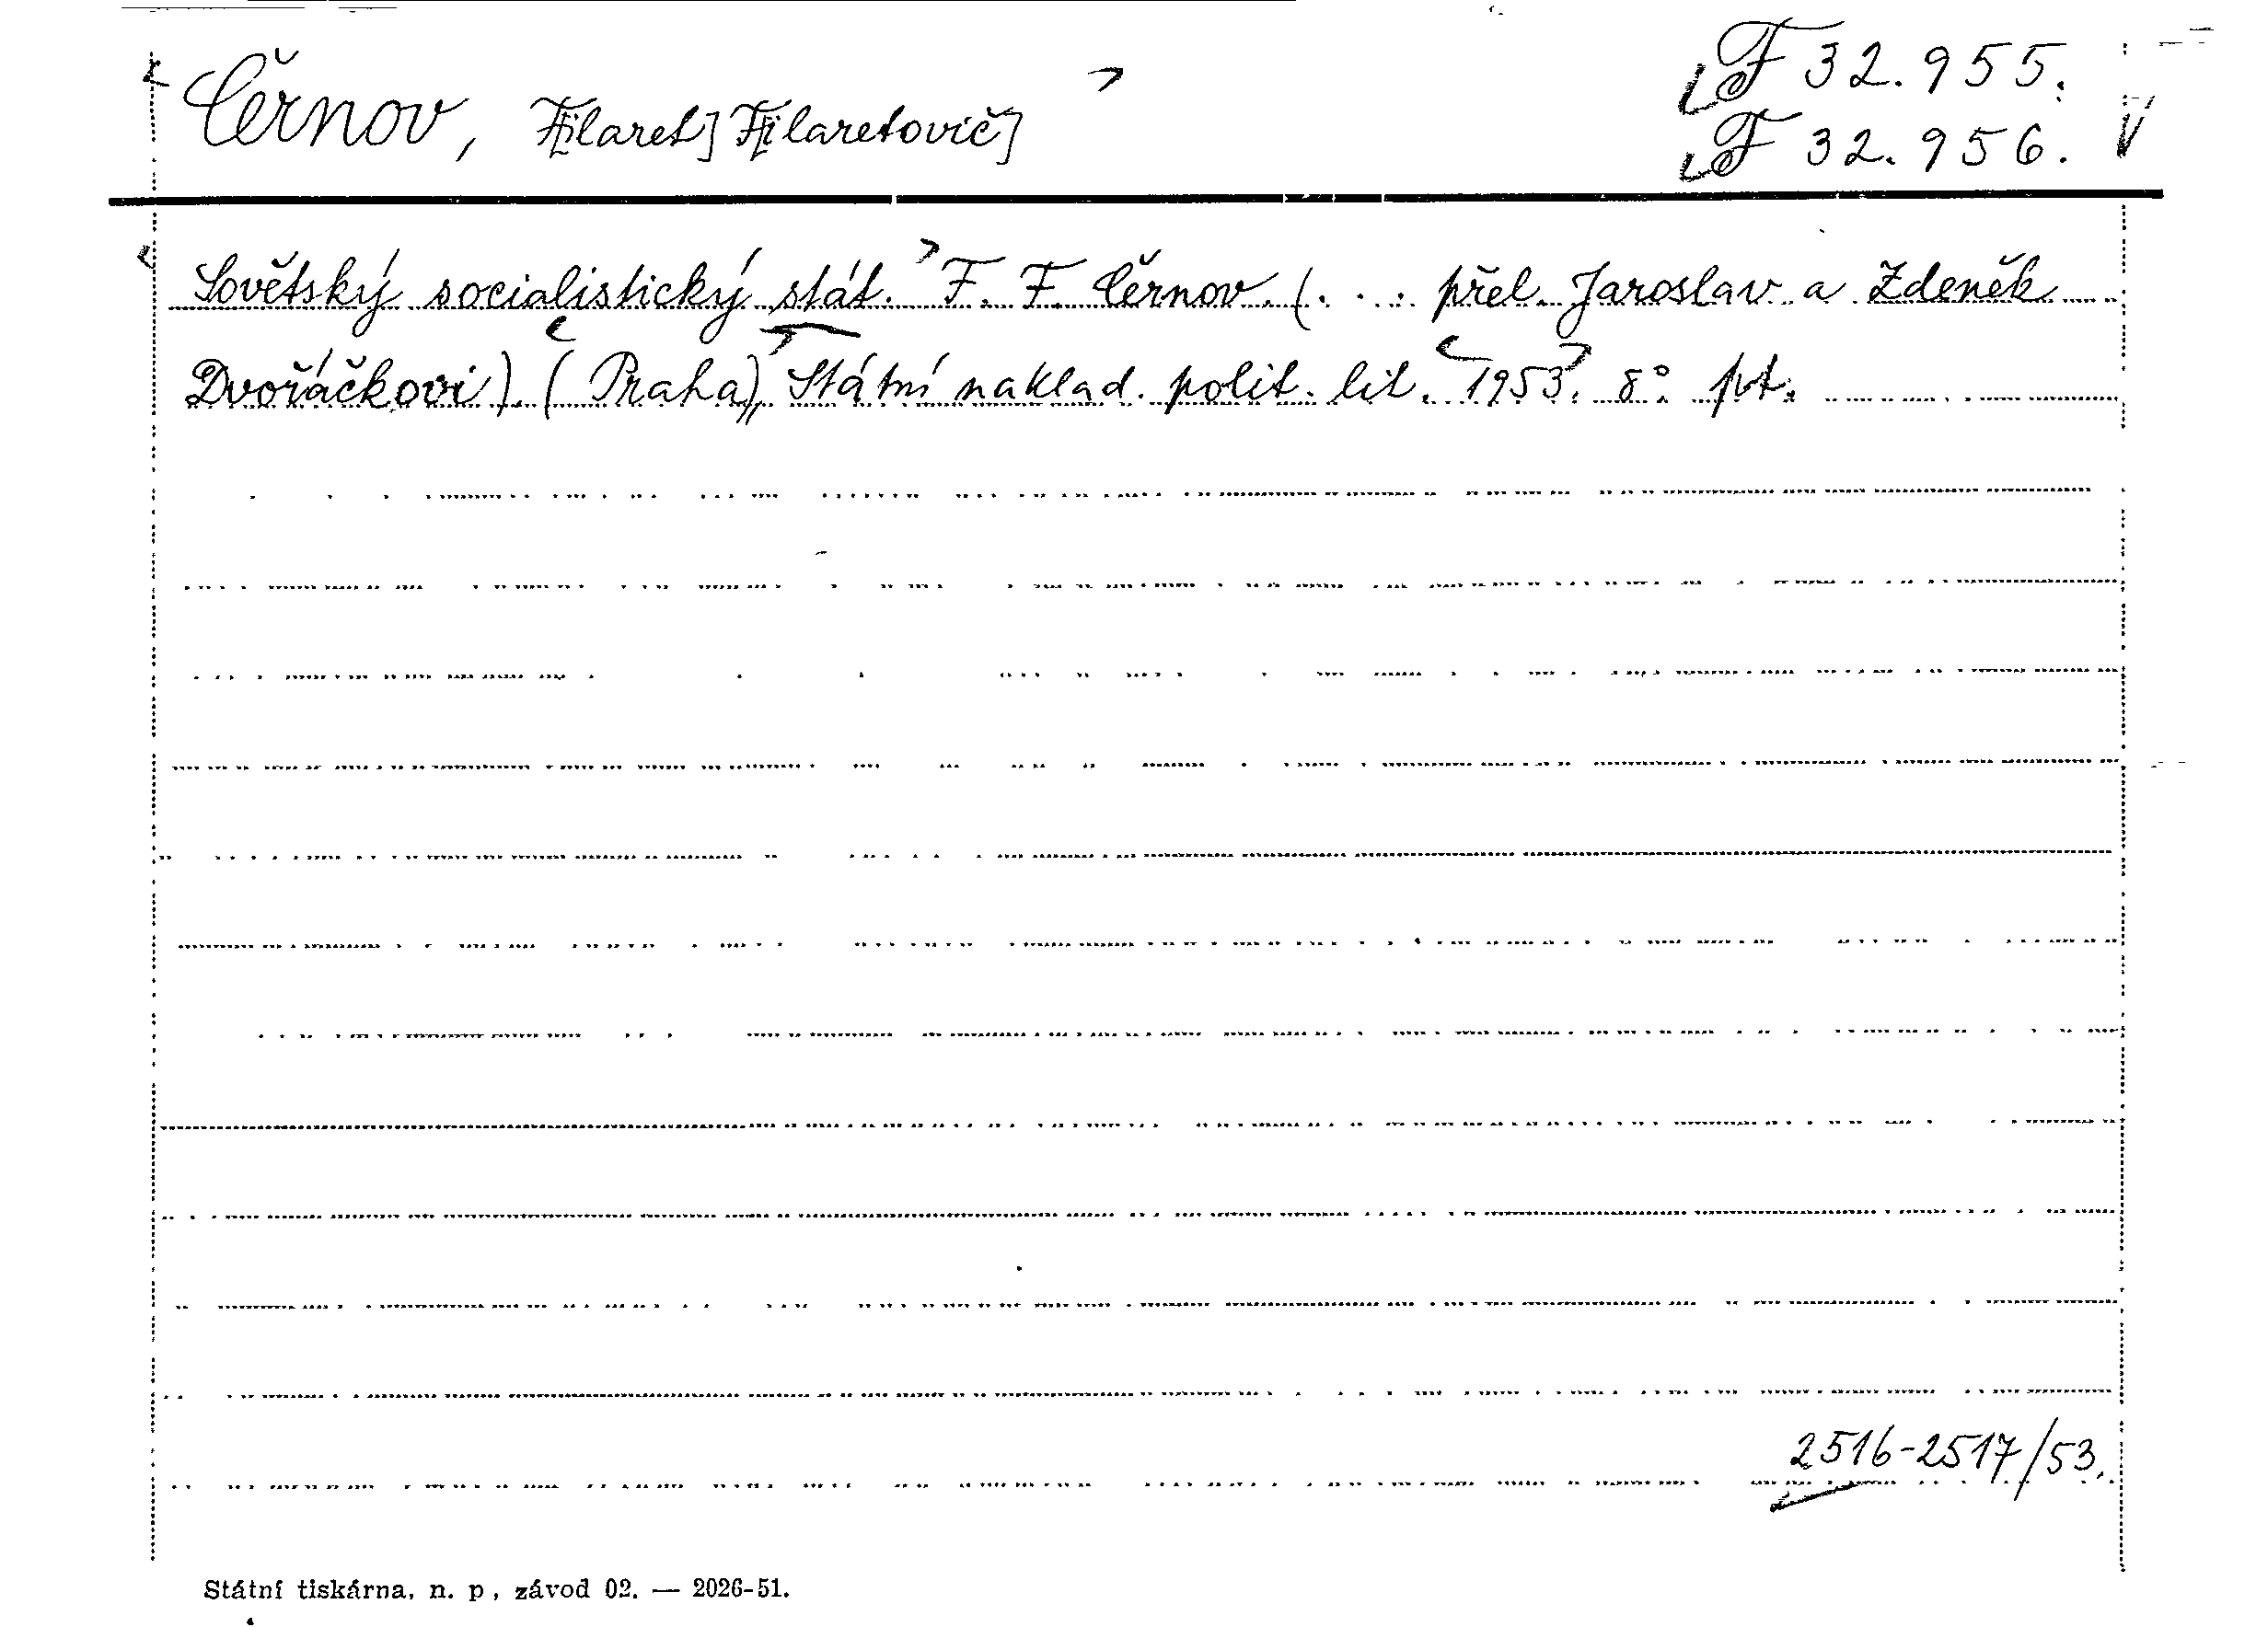 Černov, F[ilaret] F[ilaretovič]
F 32.955.
F 32.956.
Sovětský socialistický stát. F. F. Černov. (. . . přel. Jaroslav a Zdeněk
Dvořáčkovi). (Praha), Státní naklad. polit. lit. 1953. 8° pvt.
2516-2517/53.
Státní tiskárna, n. p., závod 02. — 2026-51.